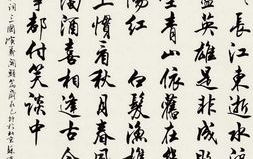 長江東逝水浪
盡英雄是非成敗
空青山依舊在幾
陽紅 白髮漁樵
上慣看秋月春風
濁酒喜相逢古今
事都付笑談中
詞 三國演義開篇詞